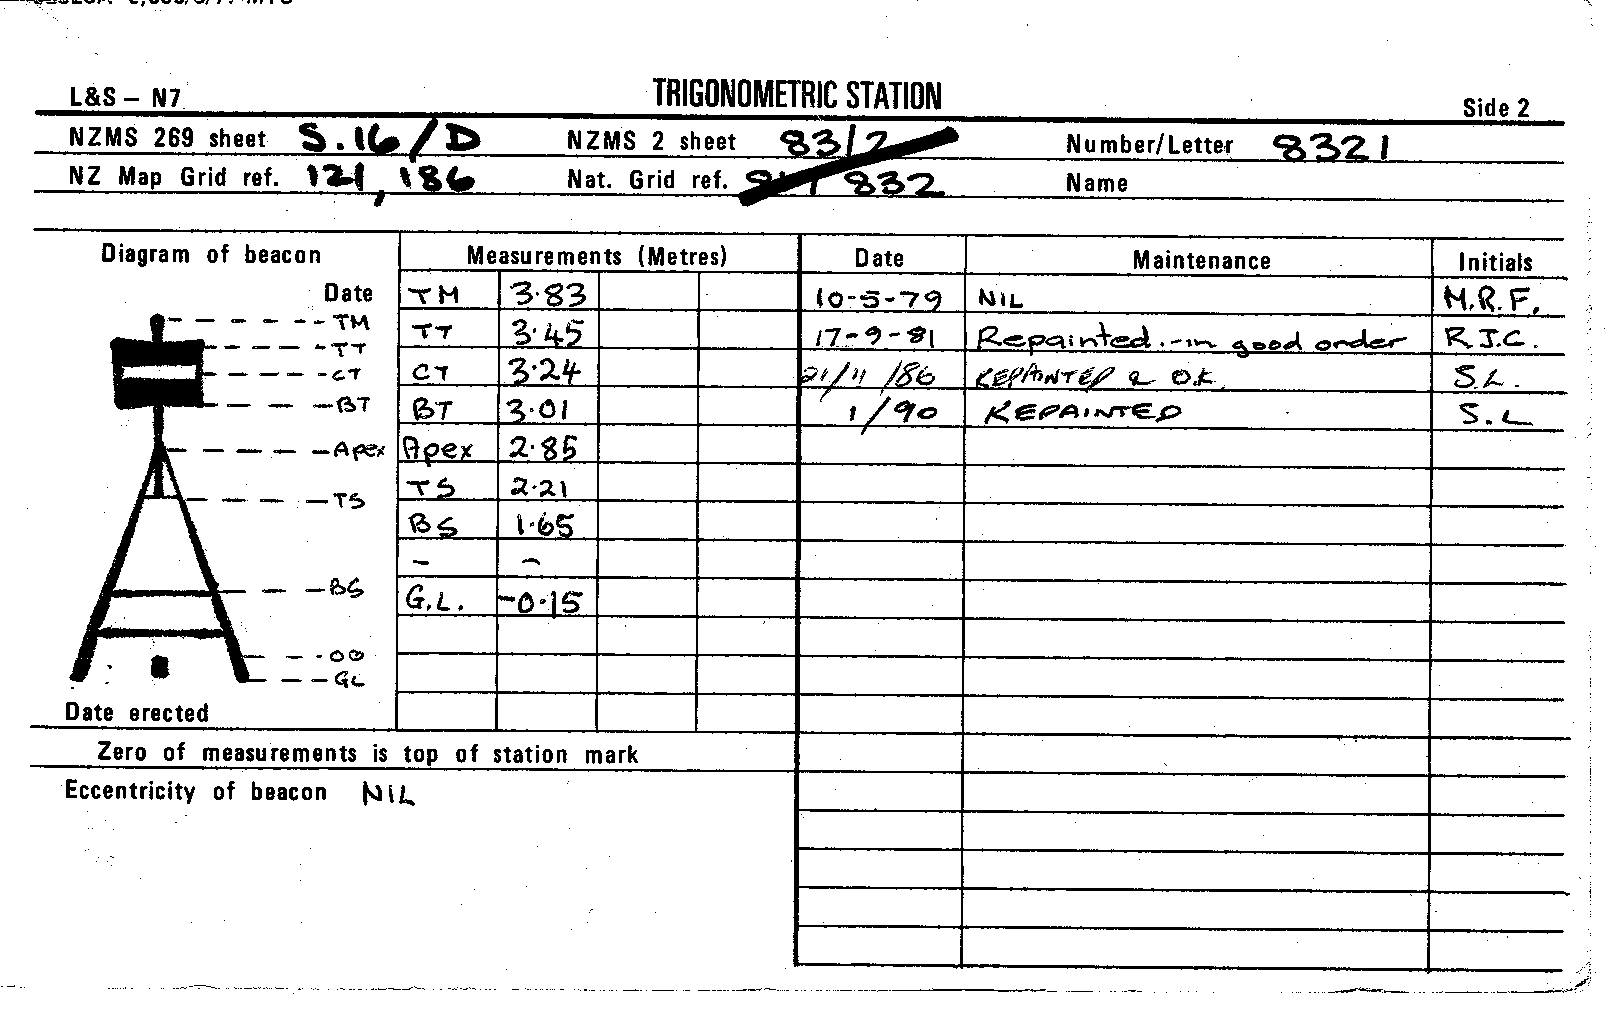 L&S – N7 TRIGONOMETRIC STATION Side 2
NZMS 269 sheet S.16/D NZMS 2 sheet 83/2 Number/Letter 8321
NZ Map Grid ref. 121,186 Nat. Grid ref. 832 Name
Diagram of beacon Measurements (Metres) Date Maintenance Initials
Date TM 3.83 10-5-79 NIL M.R.F.
TM
TT TT 3.45 17-9-81 Repainted.-in good order R.J.C.
CT CT 3.24 /11/86 REPAINTED & O.K. S.L.
BT BT 3.01 1/90 REPAINTED S.L
Apex Apex 2.85
TS TS 2.21
BS 1.65
– –
BS G.L. -0.15
00
GL
Date erected
Zero of measurements is top of station mark
Eccentricity of beacon NIL